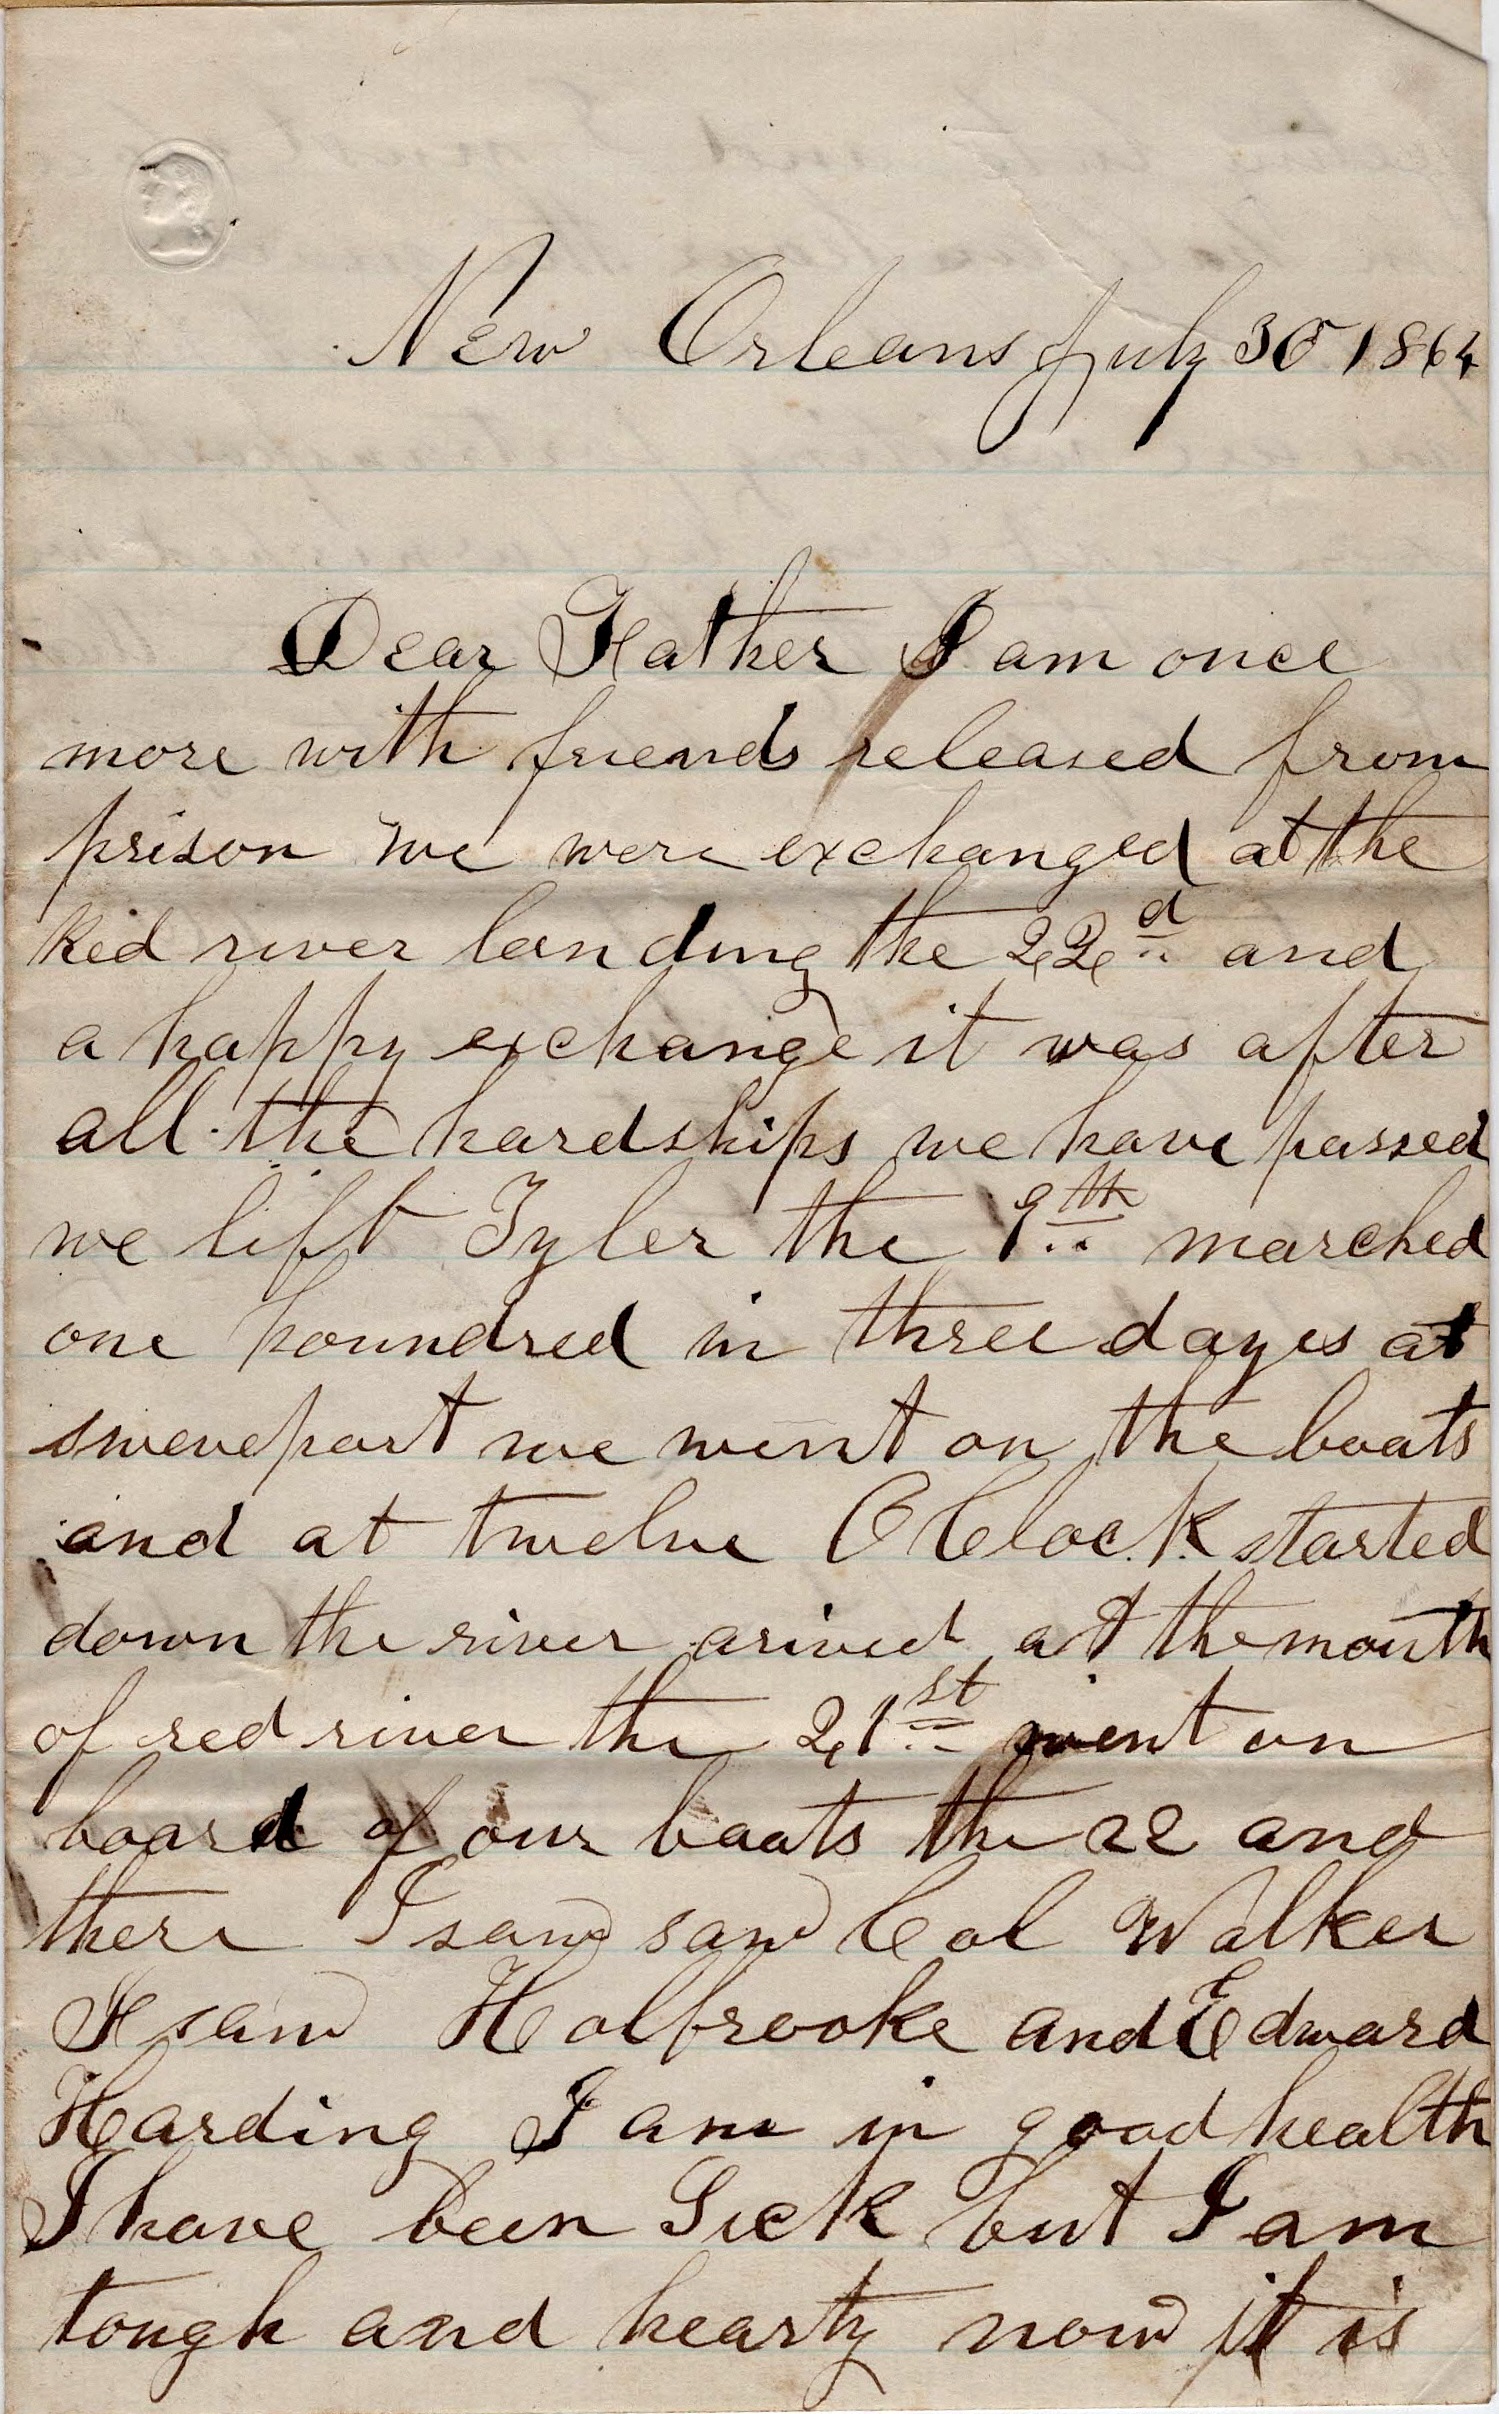 New Orleans July 30 1864
Dear Father I am once
more with friends released from
prison we were exchanged at the
Red river landing the 22d and
a happy exchange it was after
all the hardships we have passed
we lift Tyler the 9th marched
one houndred in three dayes at
sweveport we went on the boats
and at twelve O Clock started
down the river arived at the mouth
of red river the 21st went on
board of our boats the 22 and
there I saw saw Col Walker
I saw Holbrooke and Edward
Harding I am in good health
I have been Sick but I am
tough and hearty now it is